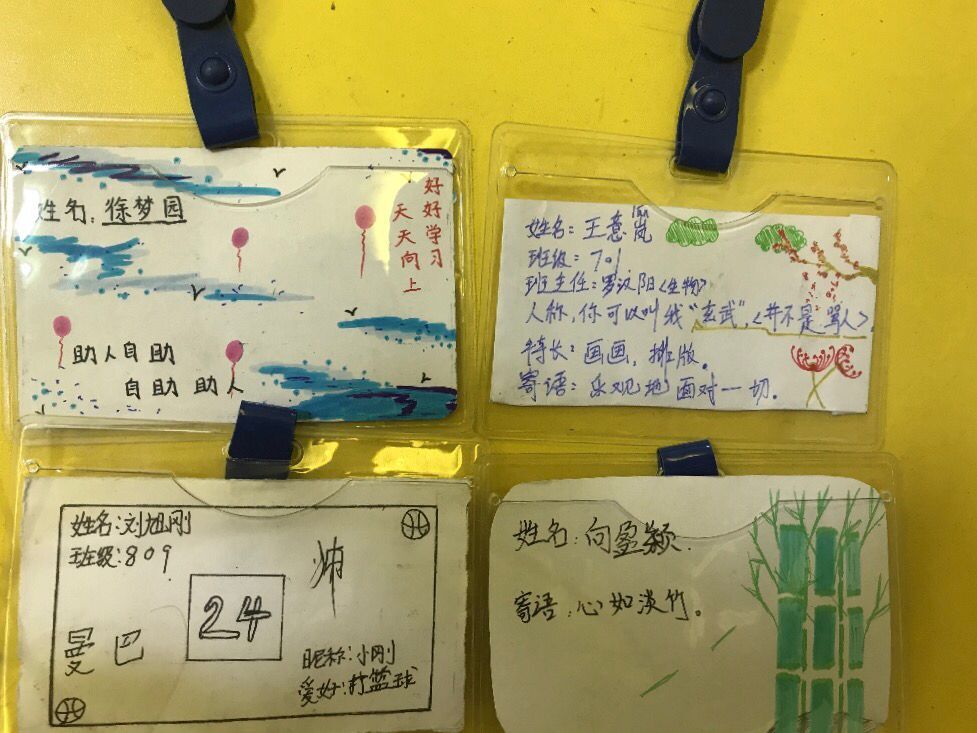 姓名:徐梦园
好好学习
天天向上
助人自助
自助助人
姓名:王意岚
岚
班级:701
班主任:罗汶阳<生物>
人称,你可以叫我"玄武",<并不是骂人>.
特长:画画,排版。
寄语:乐观地面对一切.
姓名:刘旭刚
班级:809
帅
24
曼巴
昵称:小刚
爱好:打篮球
姓名:向盈颖.
寄语:心如淡竹。